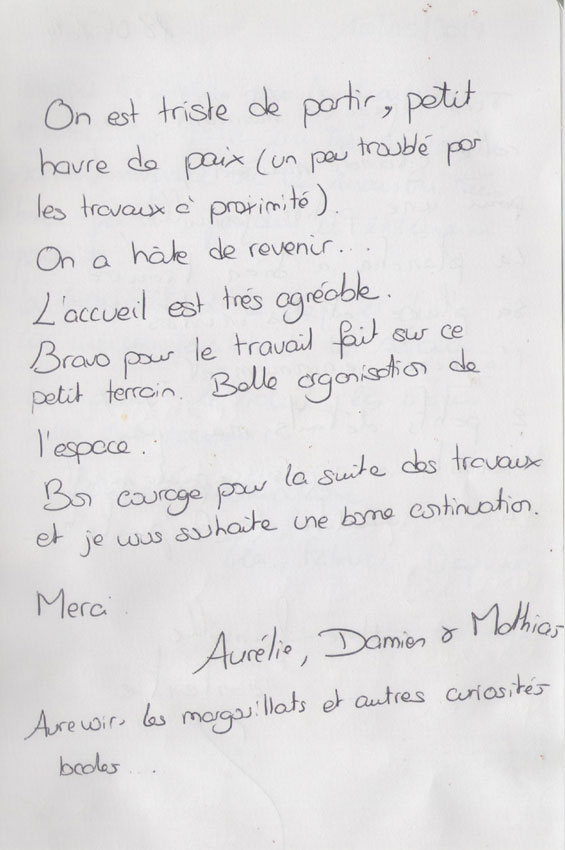 On est triste de partir, petit
havre de paix (un peu troublé par
les travaux à proximité).
On a hâte de revenir...
L'accueil est trés agréable.
Bravo pour le travail fait sur ce
petit terrain. Belle organisation de
l'espace.
Bon courage pour la suite des travaux
et je vous souhaite une bonne continuation.
Merci.
Aurélie, Damien & Mathias
Aurevoir, les margouillats et autres curiosités
locales...